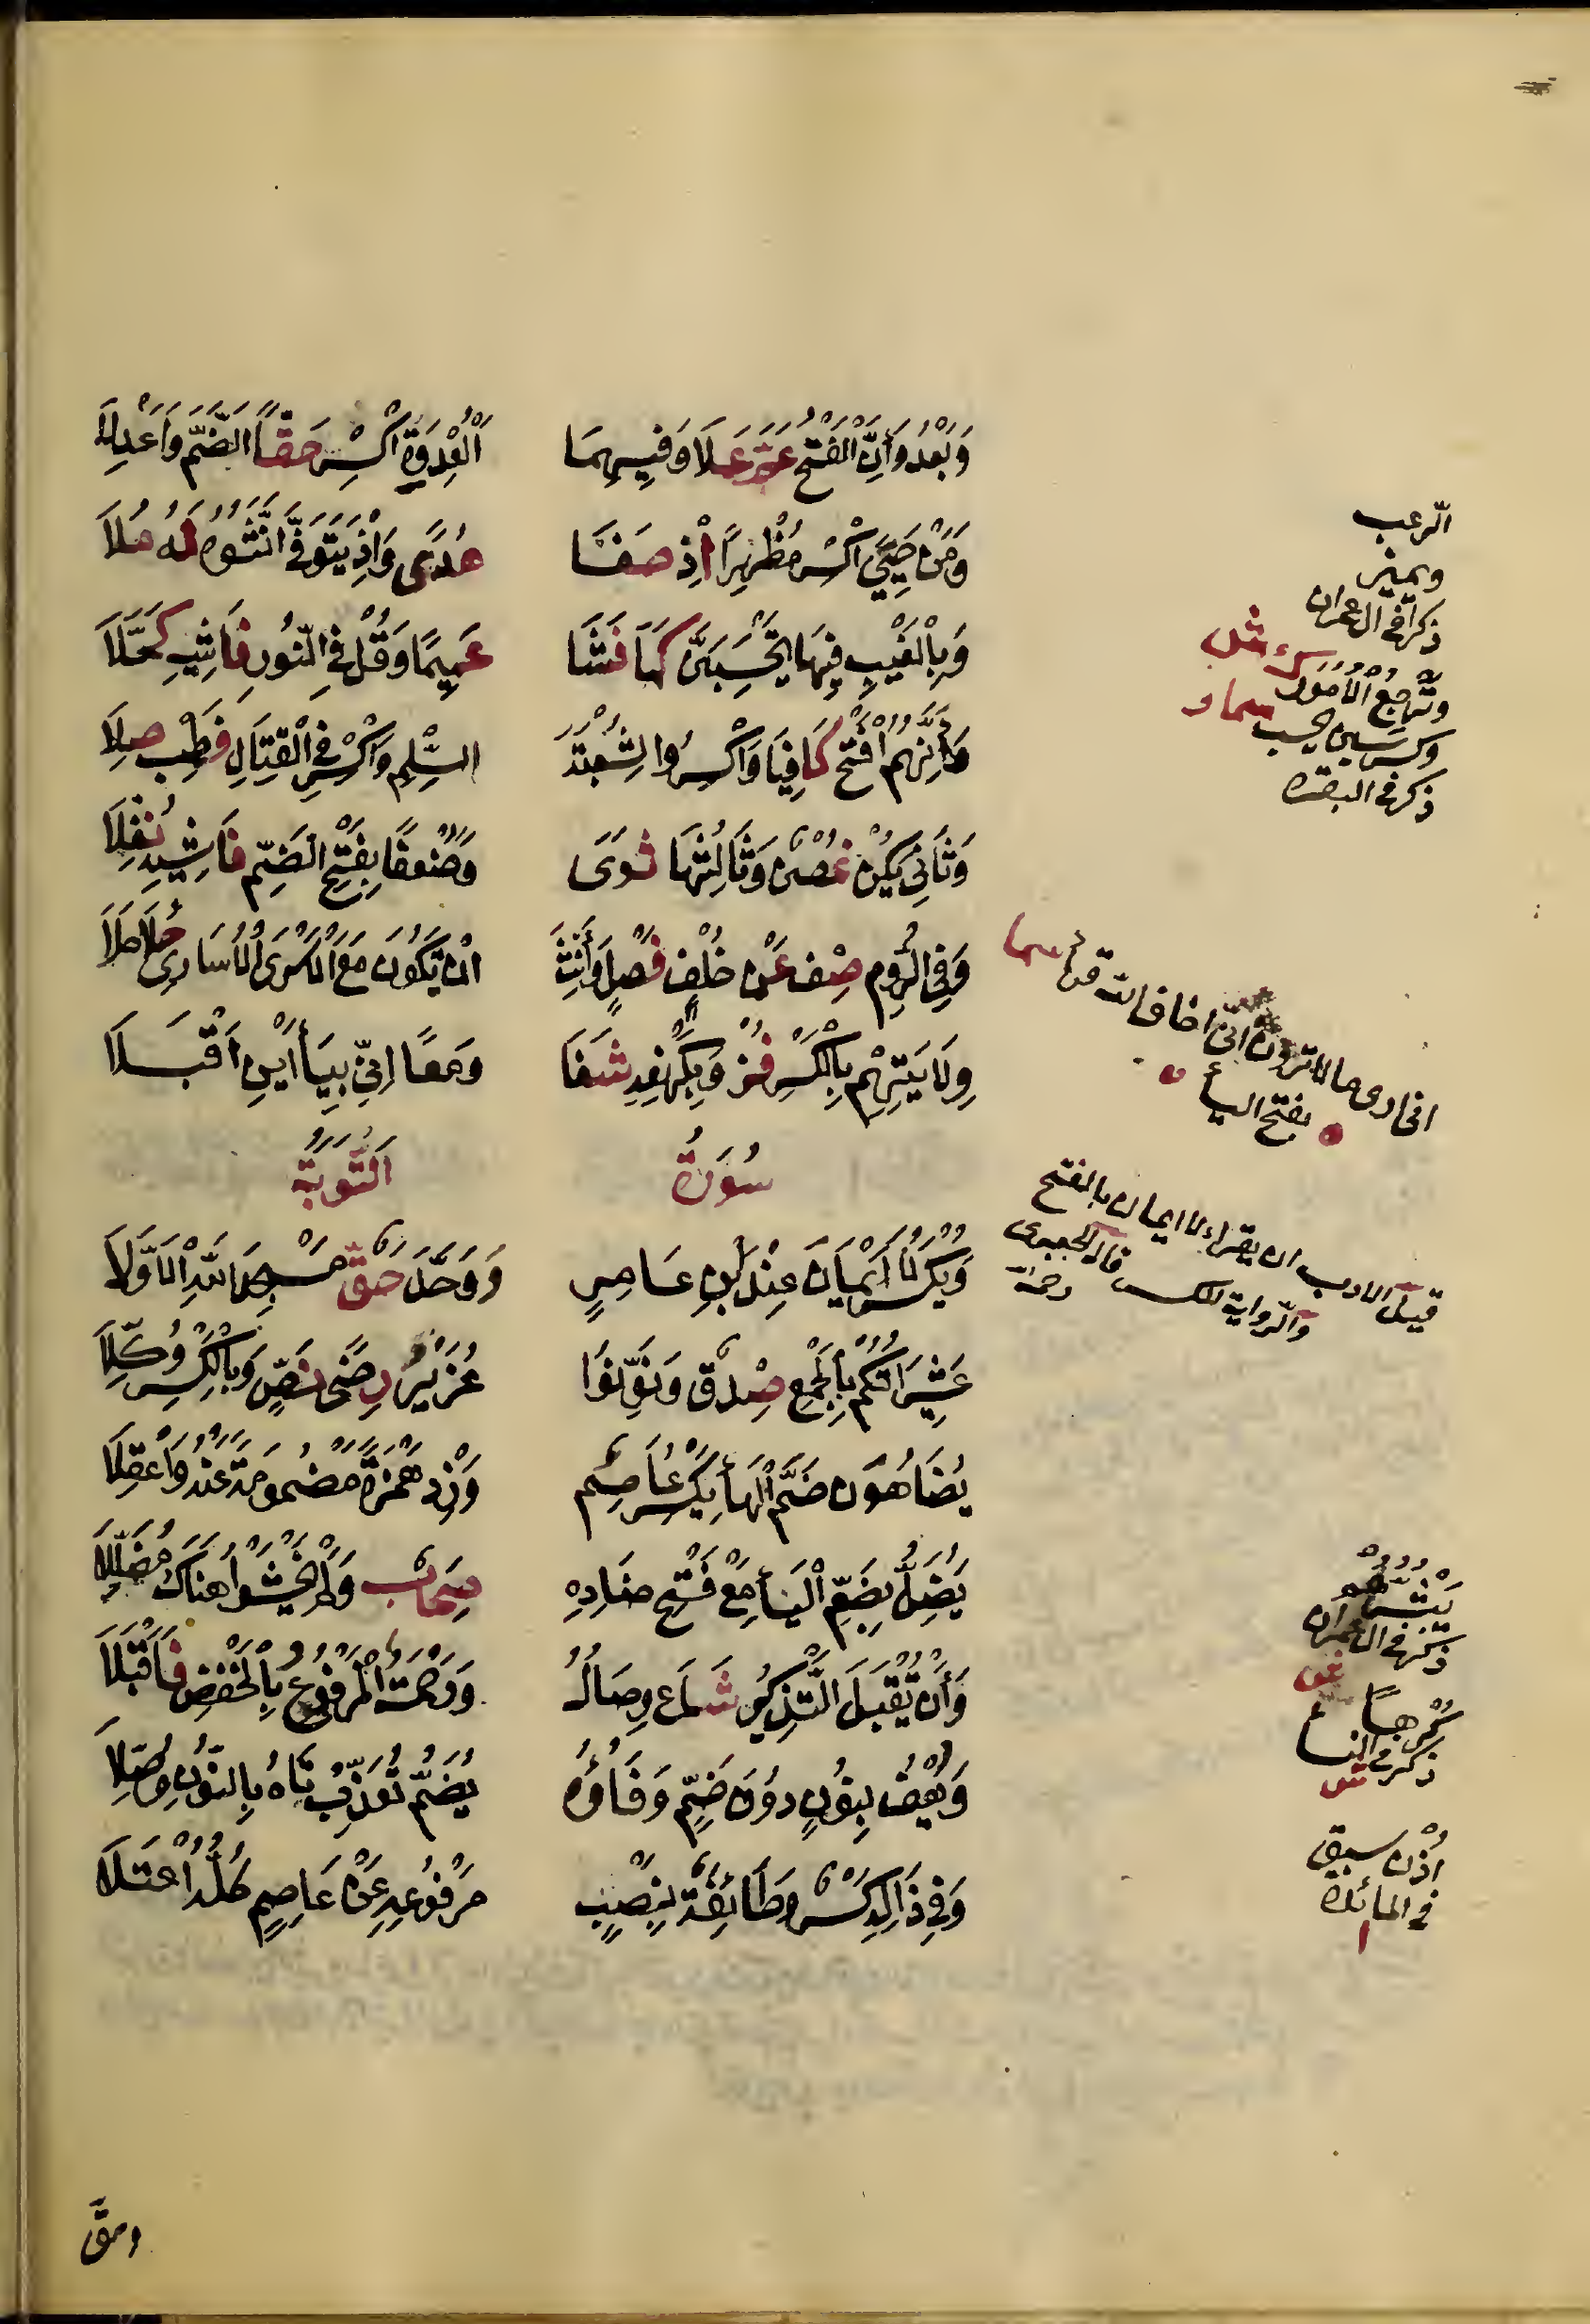 وَبَعْدُ وَاِنَّ الْفَتْحُ عَمَّ عَلَا وَفِيهِمَا الْعُِدْوَةِ اكْسِرْ حَقًّا الضَّمَّ وَاعْدِلَا
وَمَنْ حَيِيَ اكْسِرْ مُظْهِرًا اِذْ صَفَا هُدًى وَاِذْ يَتَوَفَّى اَنِّثُوهُ لَهُ مُلَا
وَبِالْغَيْبِ فِيهَا يَحْسَبَنَّ كَمَا فَشَا عَمِيمًا وَقُلْ فِي النُّورِ فَاشِيهِ كَحَّلَا
وَاَنَّهُمُ افْتَحْ كَافِيًا وَاكْسِرُوا لِشُعْبَةَ السَّلْمِ وَاكْسِرْ فِي الْقِتَالِ فَطِبْ صِلَا
وَثَانِي يَكُنْ غُصْنٌ وَثَالِثُهَا ثَوَى وَضُعْفًا بِفَتْحِ الضَّمِّ فَاشِيهِ نُفِّلَا
وَفِي الرُّومِ صِفْ عَنْ خُلْفِ فَصْلٍ وَاَنِّثَ اَنْ يَكُونَ مَعَ الْاَسْرَى الْاُسَارَى حُلًا حَلَا
وِلَايَتِهِمْ بِالْكَسْرِ فُزْ وَبِكَهْفِهِ شَفَا وَمَعًا اِنِّي بِيَأَايْنِ اَقْبَلَا
سُورَةُ التَّوْبَةِ
وَيُكْسَرُ لَا اَيْمَانَ عِنْدَ ابْنِ عَامِرٍ وَوَحَّدَ حَقٌّ مَسْجِدَ اللّٰهِ الْاَوَّلَا
عَشِيرَاتُكُمْ بِالْجَمْعِ صِدْقٌ وَنَوِّنُوا عُزَيْرٌ رِضَى نَصٍّ وَبِالْكَسْرِ وُكِّلَا
يُضَاهُونَ ضَمَّ الْهَأِ يَكْسِرُ عَاصِمٌ وَزِدْ هَمْزَةً مَضْمُومَةً عَنْهُ وَاعْقِلَا
يَضِلُّ بِضَمِّ الْيَأِ مَعْ فَتْحِ ضَادِهِ صِحَابٌ وَلَمْ يَخْشَوْا هُنَاكَ مُضَلِّلَا
وَاَنْ تُقْبَلَ التَّذْكِيرُ شَاعَ وِصَالُهُ وَرَحْمَةٌ الْمَرْفُوعُ بِالْخَفْضِ فَاقْبَلَا
وَيُعْفَ بِنُونٍ دُونَ ضَمٍّ وَفَاؤُهُ يُضَمُّ تُعَذَّبْ تَاهُ بِالنُّونِ وُصِّلَا
وَفِي ذَالِهِ كَسْرٌ وَطَائِفَةٌ بِنَصْبِ مَرْفُوعِهِ عَنْ عَاصِمٍ كُلُّهُ اعْتَلَا
وحقّ
الرّعب
ويميز
ذكرا فى ال عمران
وتُرجع الأمور ك شل
وكسر سين يحسب سما ر
ذكر فى البقره
انى ارى ما لا ترون انى اخاف الله قرأ سما
بفتح اليأ
قيل الادب ان يقراء لا ايمان بالفتح
والرواية للكسر قال الجعبرى
رحمه
يبشرهم
ذكر فى ال عمران
كرها
ذكر فى النسا
اذن سبق
فى المائدة
ا